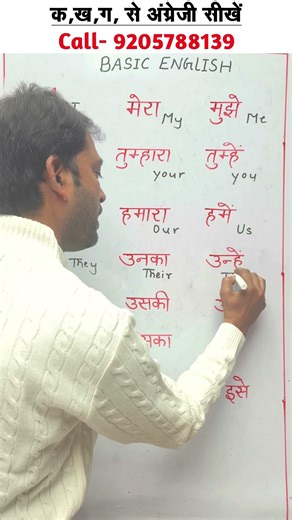 क,ख,ग, से अंग्रेजी सीखें
Call- 9205788139
BASIC ENGLISH
I मेरा My मुझे Me
तुम्हारा your तुम्हें you
हमारा Our हमें Us
They उनका Their उन्हें
उसकी
इसे